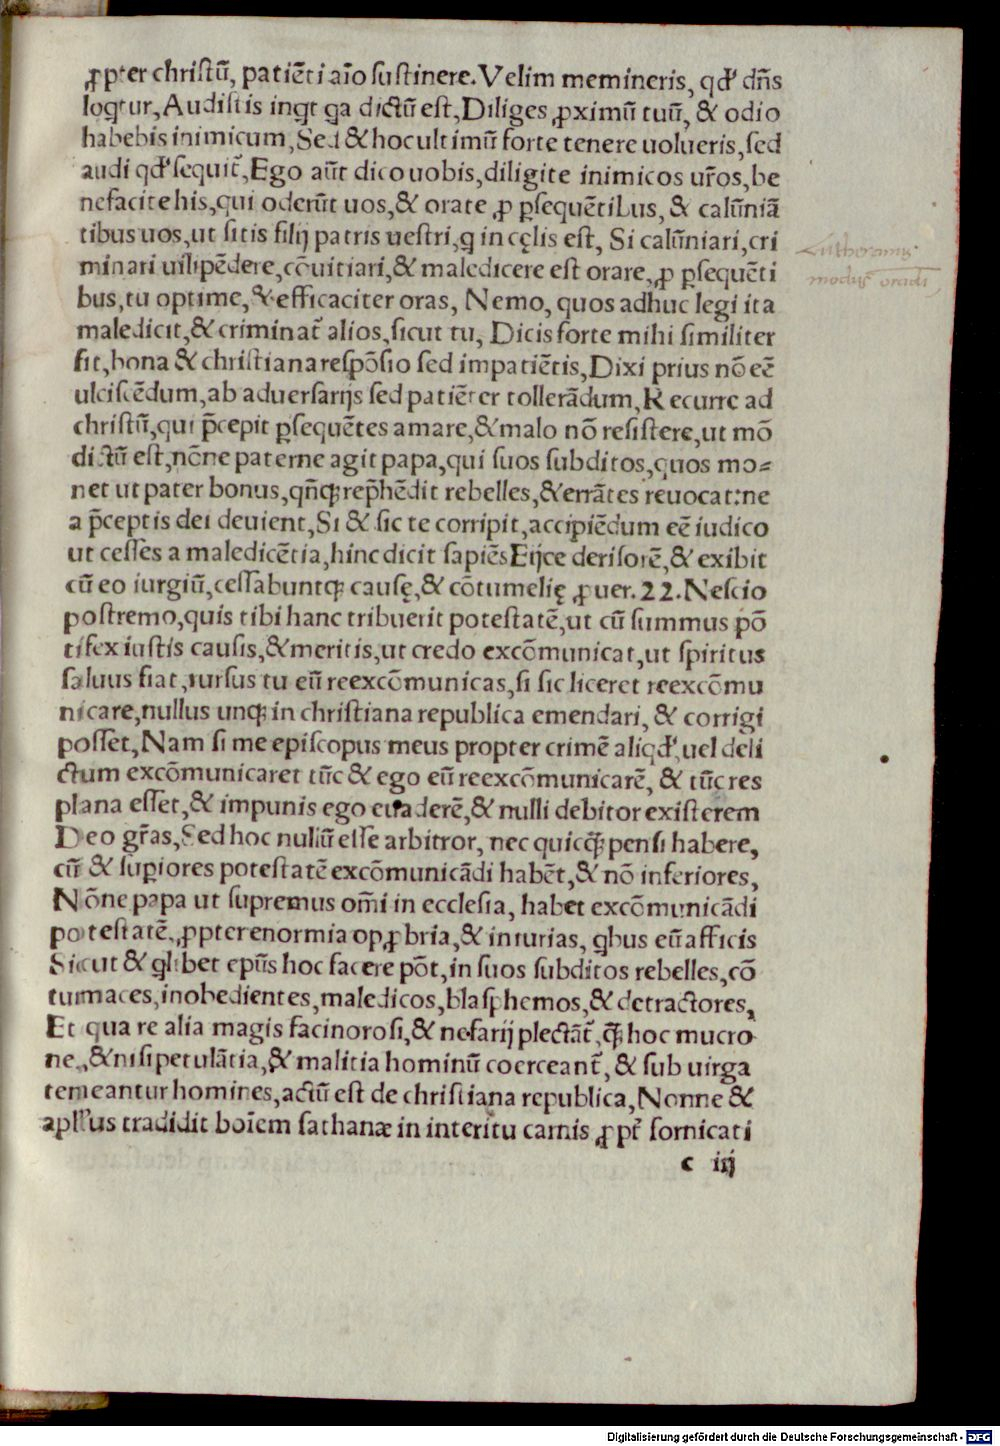 ꝓpter christū, patiēti aīo sustinere. Velim memineris, qd' dn̄s
loqtur, Audistis inqt qa dictū est, Diliges ꝓximū tuū, & odio
habebis inimicum, Sed & hoc ultimū forte tenere uolueris, sed
audi qd' sequit̄, Ego aūt dico uobis, diligite inimicos ur̄os, be
nefacite his, qui oderūt uos, & orate ꝓ ꝑsequētibus, & calūniā
tibus uos, ut sitis filij patris uestri, q in cęlis est, Si calūniari, cri
minari uilipēdere, cōuitiari, & maledicere est orare, ꝓ ꝑsequēti
bus, tu optime, & efficaciter oras, Nemo, quos adhuc legi ita
maledicit, & criminat̄ alios, sicut tu, Dicis forte mihi similiter
fit, bona & christiana respōsio sed impatiētis, Dixi prius nō eē
ulciscēdum, ab aduersarijs sed patiēter tollerādum, Recurre ad
christū, qui p̄cepit ꝑsequētes amare, & malo nō resistere, ut mō
dictū est, nōne paterne agit papa, qui suos subditos, quos mo⸗
net ut pater bonus, qn̄qꝫ rep̄hēdit rebelles, & errātes reuocat: ne
a p̄ceptis dei deuient, Si & sic te corripit, accipiēdum eē iudico
ut cesses a maledicētia, hinc dicit sapiēs Eijce derisorē, & exibit
cū eo iurgiū, cessabuntqꝫ causę, & cōtumelię ꝓuer. 22. Nescio
postremo, quis tibi hanc tribuerit potestatē, ut cū summus pō
tifex iustis causis, & meritis, ut credo excōmunicat, ut spiritus
saluus fiat, rursus tu eū reexcōmunicas, si sic liceret reexcōmu
nicare, nullus unqꝫ in christiana republica emendari, & corrigi
posset, Nam si me episcopus meus propter crimē aliqd', uel deli
ctum excōmunicaret tūc & ego eū reexcōmunicarē, & tūc res
plana esset, & impunis ego euaderē, & nulli debitor existerem
Deo gr̄as, Sed hoc nullū esse arbitror, nec quicqꝫ pensi habere,
cū & suꝑiores potestatē excōmunicādi habēt, & nō inferiores,
Nōne papa ut supremus om̄i in ecclesia, habet excōmunicādi
potestatē, ꝓpter enormia opꝓbria, & iniurias, qbus eū afficis
Sicut & qlibet epūs hoc facere pōt, in suos subditos rebelles, cō
tumaces, inobedientes, maledicos, blasphemos, & detractores,
Et qua re alia magis facinorosi, & nefarij plectāt̄, qꝫ hoc mucro
ne, & nisi petulātia, & malitia hominū coerceant̄, & sub uirga
temeantur homines, actū est de christiana republica, Nonne &
apl'us tradidit boīem sathanæ in interitu carnis ꝓpt̄ fornicati
c iij
Lutheranus
modus orādi
Digitalisierung gefördert durch die Deutsche Forschungsgemeinschaft - DFG